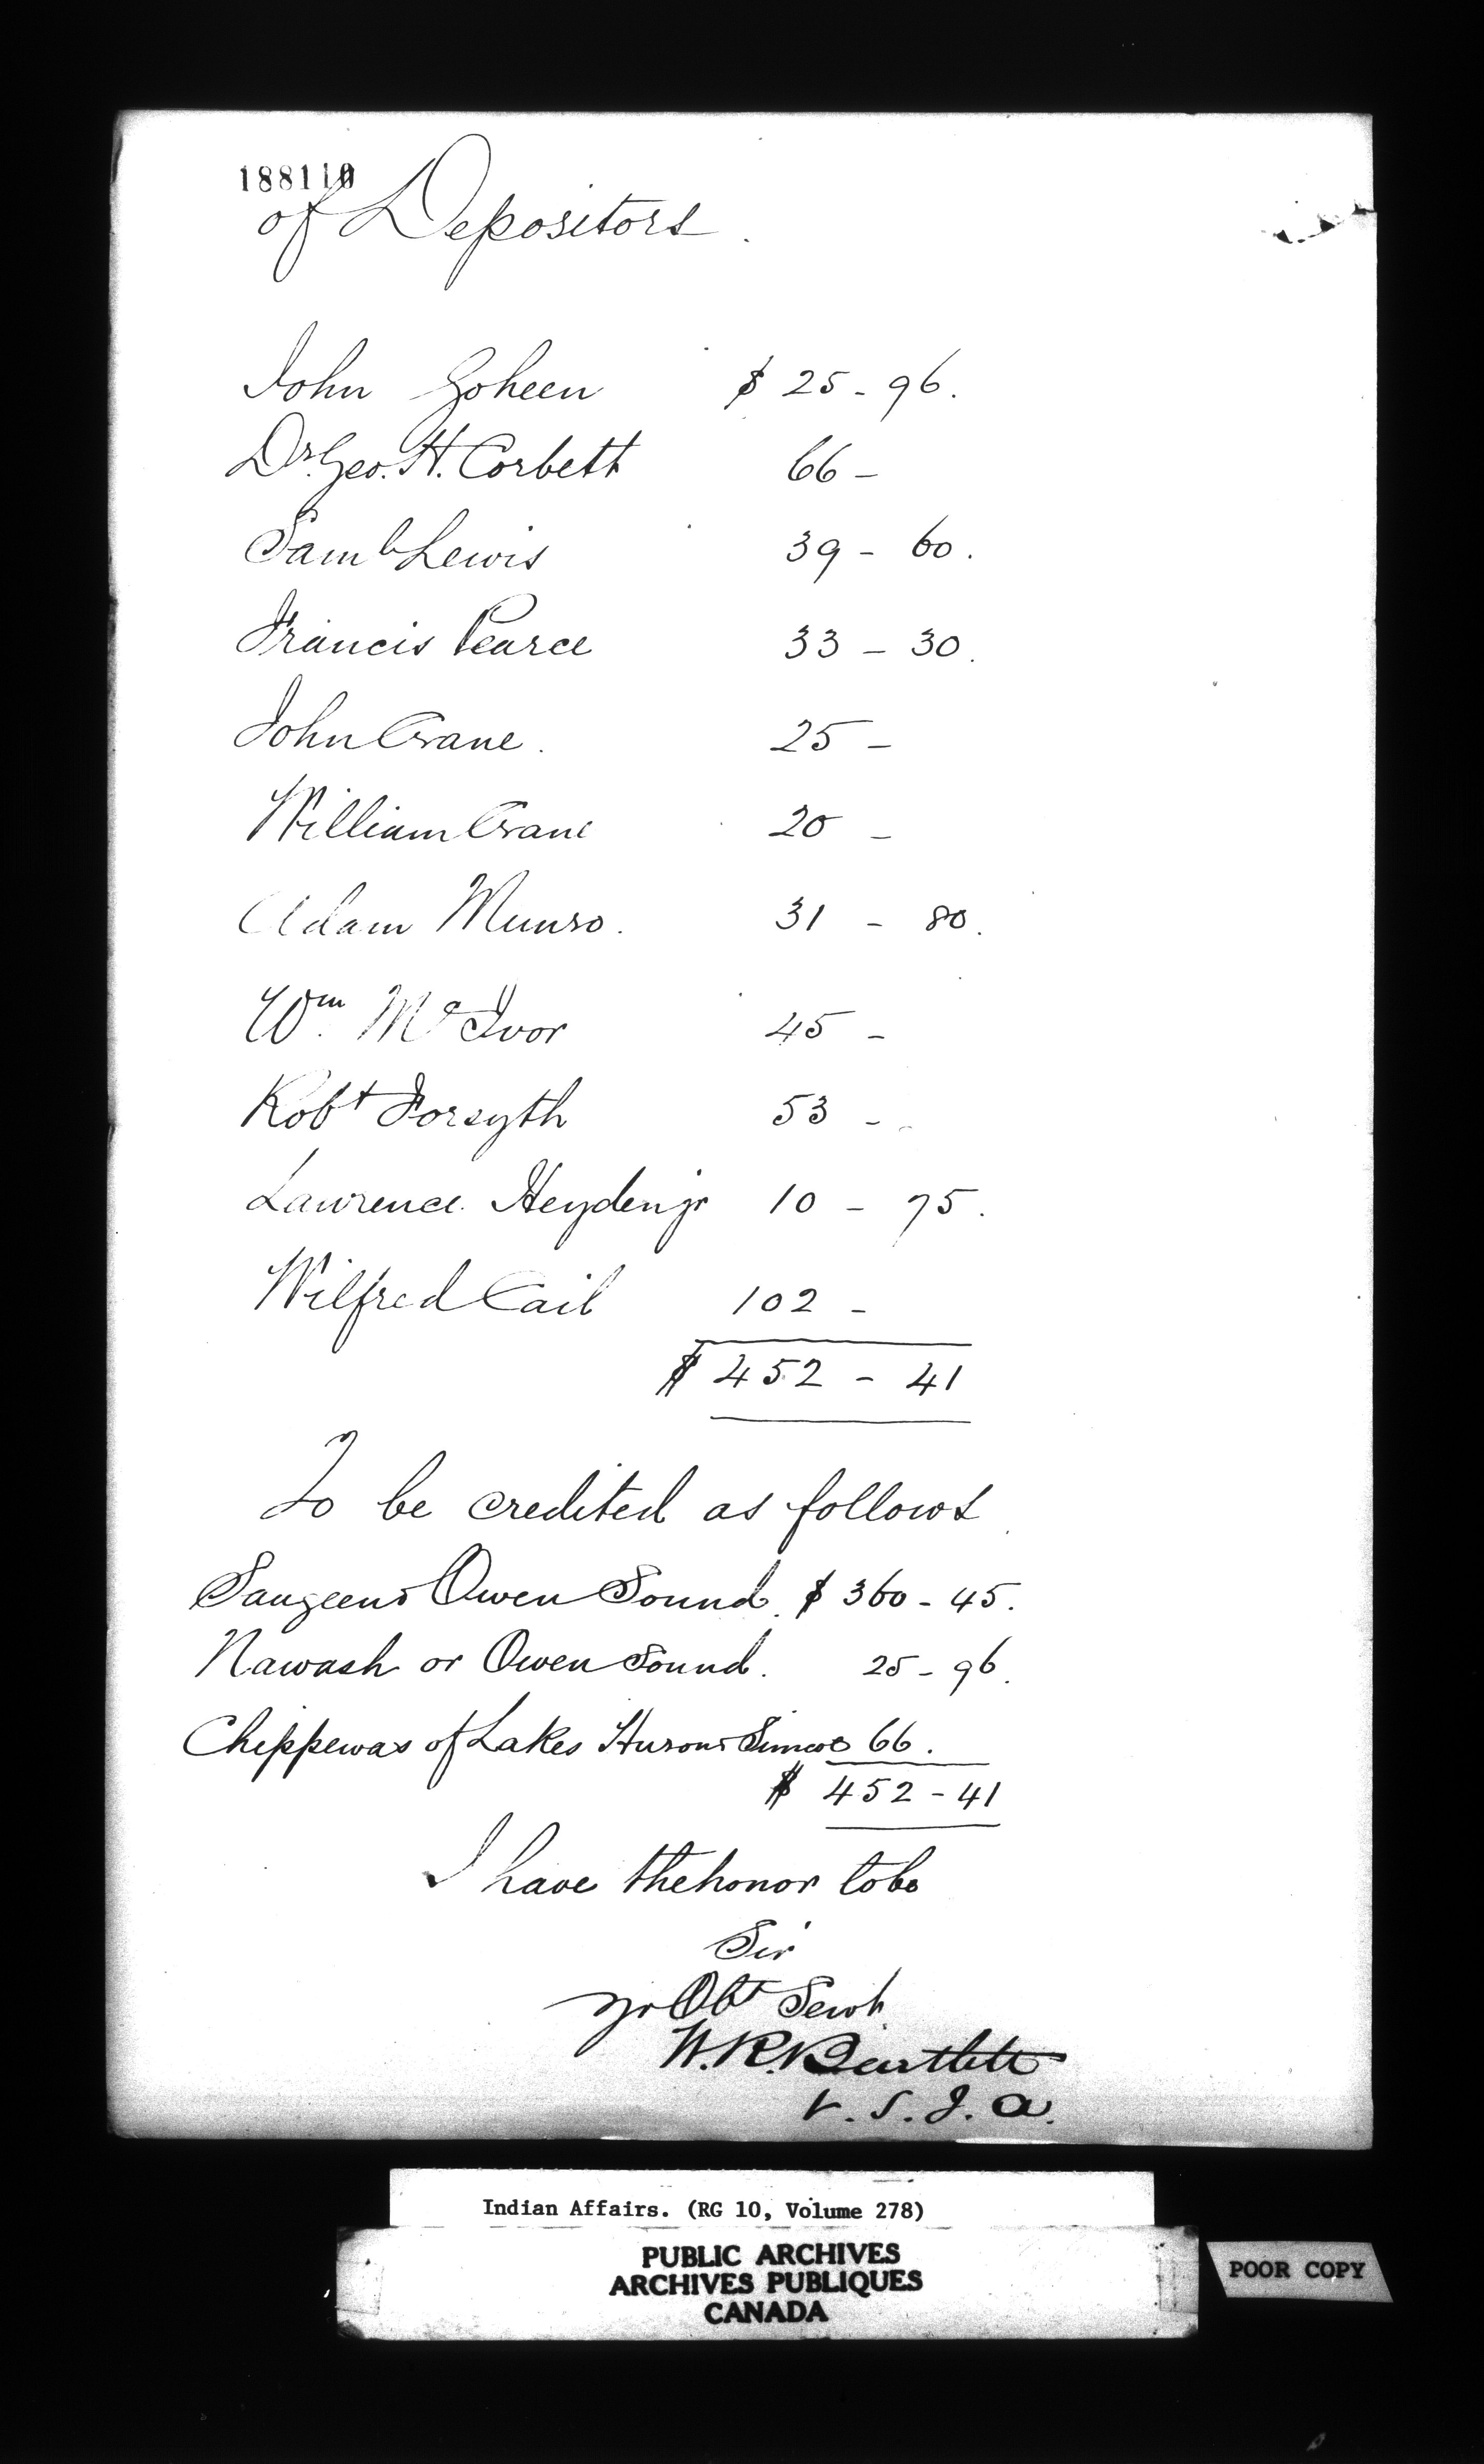 188110
of Depositors.
John Goheen $ 25 - 96.
Dr. Geo. H. Corbett 66 -
Saml Lewis 39 - 60.
Francis Pearce 33 - 30.
John Crane. 25 -
William Crane 20 -
Adam Munro. 31 - 80.
Wm. McIvor 45 -
Robt Forsyth 53 -
Lawrence Heyden jr 10 - 75.
Wilfred Cail 102 -
$ 452 - 41
To be credited as follows
Saugeen & Owen Sound. $ 360 - 45.
Nawash or Owen Sound. 25 - 96.
Chippewas of Lakes Huron & Simcoe 66.
$ 452 - 41
I have the honor to be
Sir
Yr Obt Servt
W. R. Bartlett
V. S. I. A.
Indian Affairs. (RG 10, Volume 278)
PUBLIC ARCHIVES
ARCHIVES PUBLIQUES
CANADA
POOR COPY